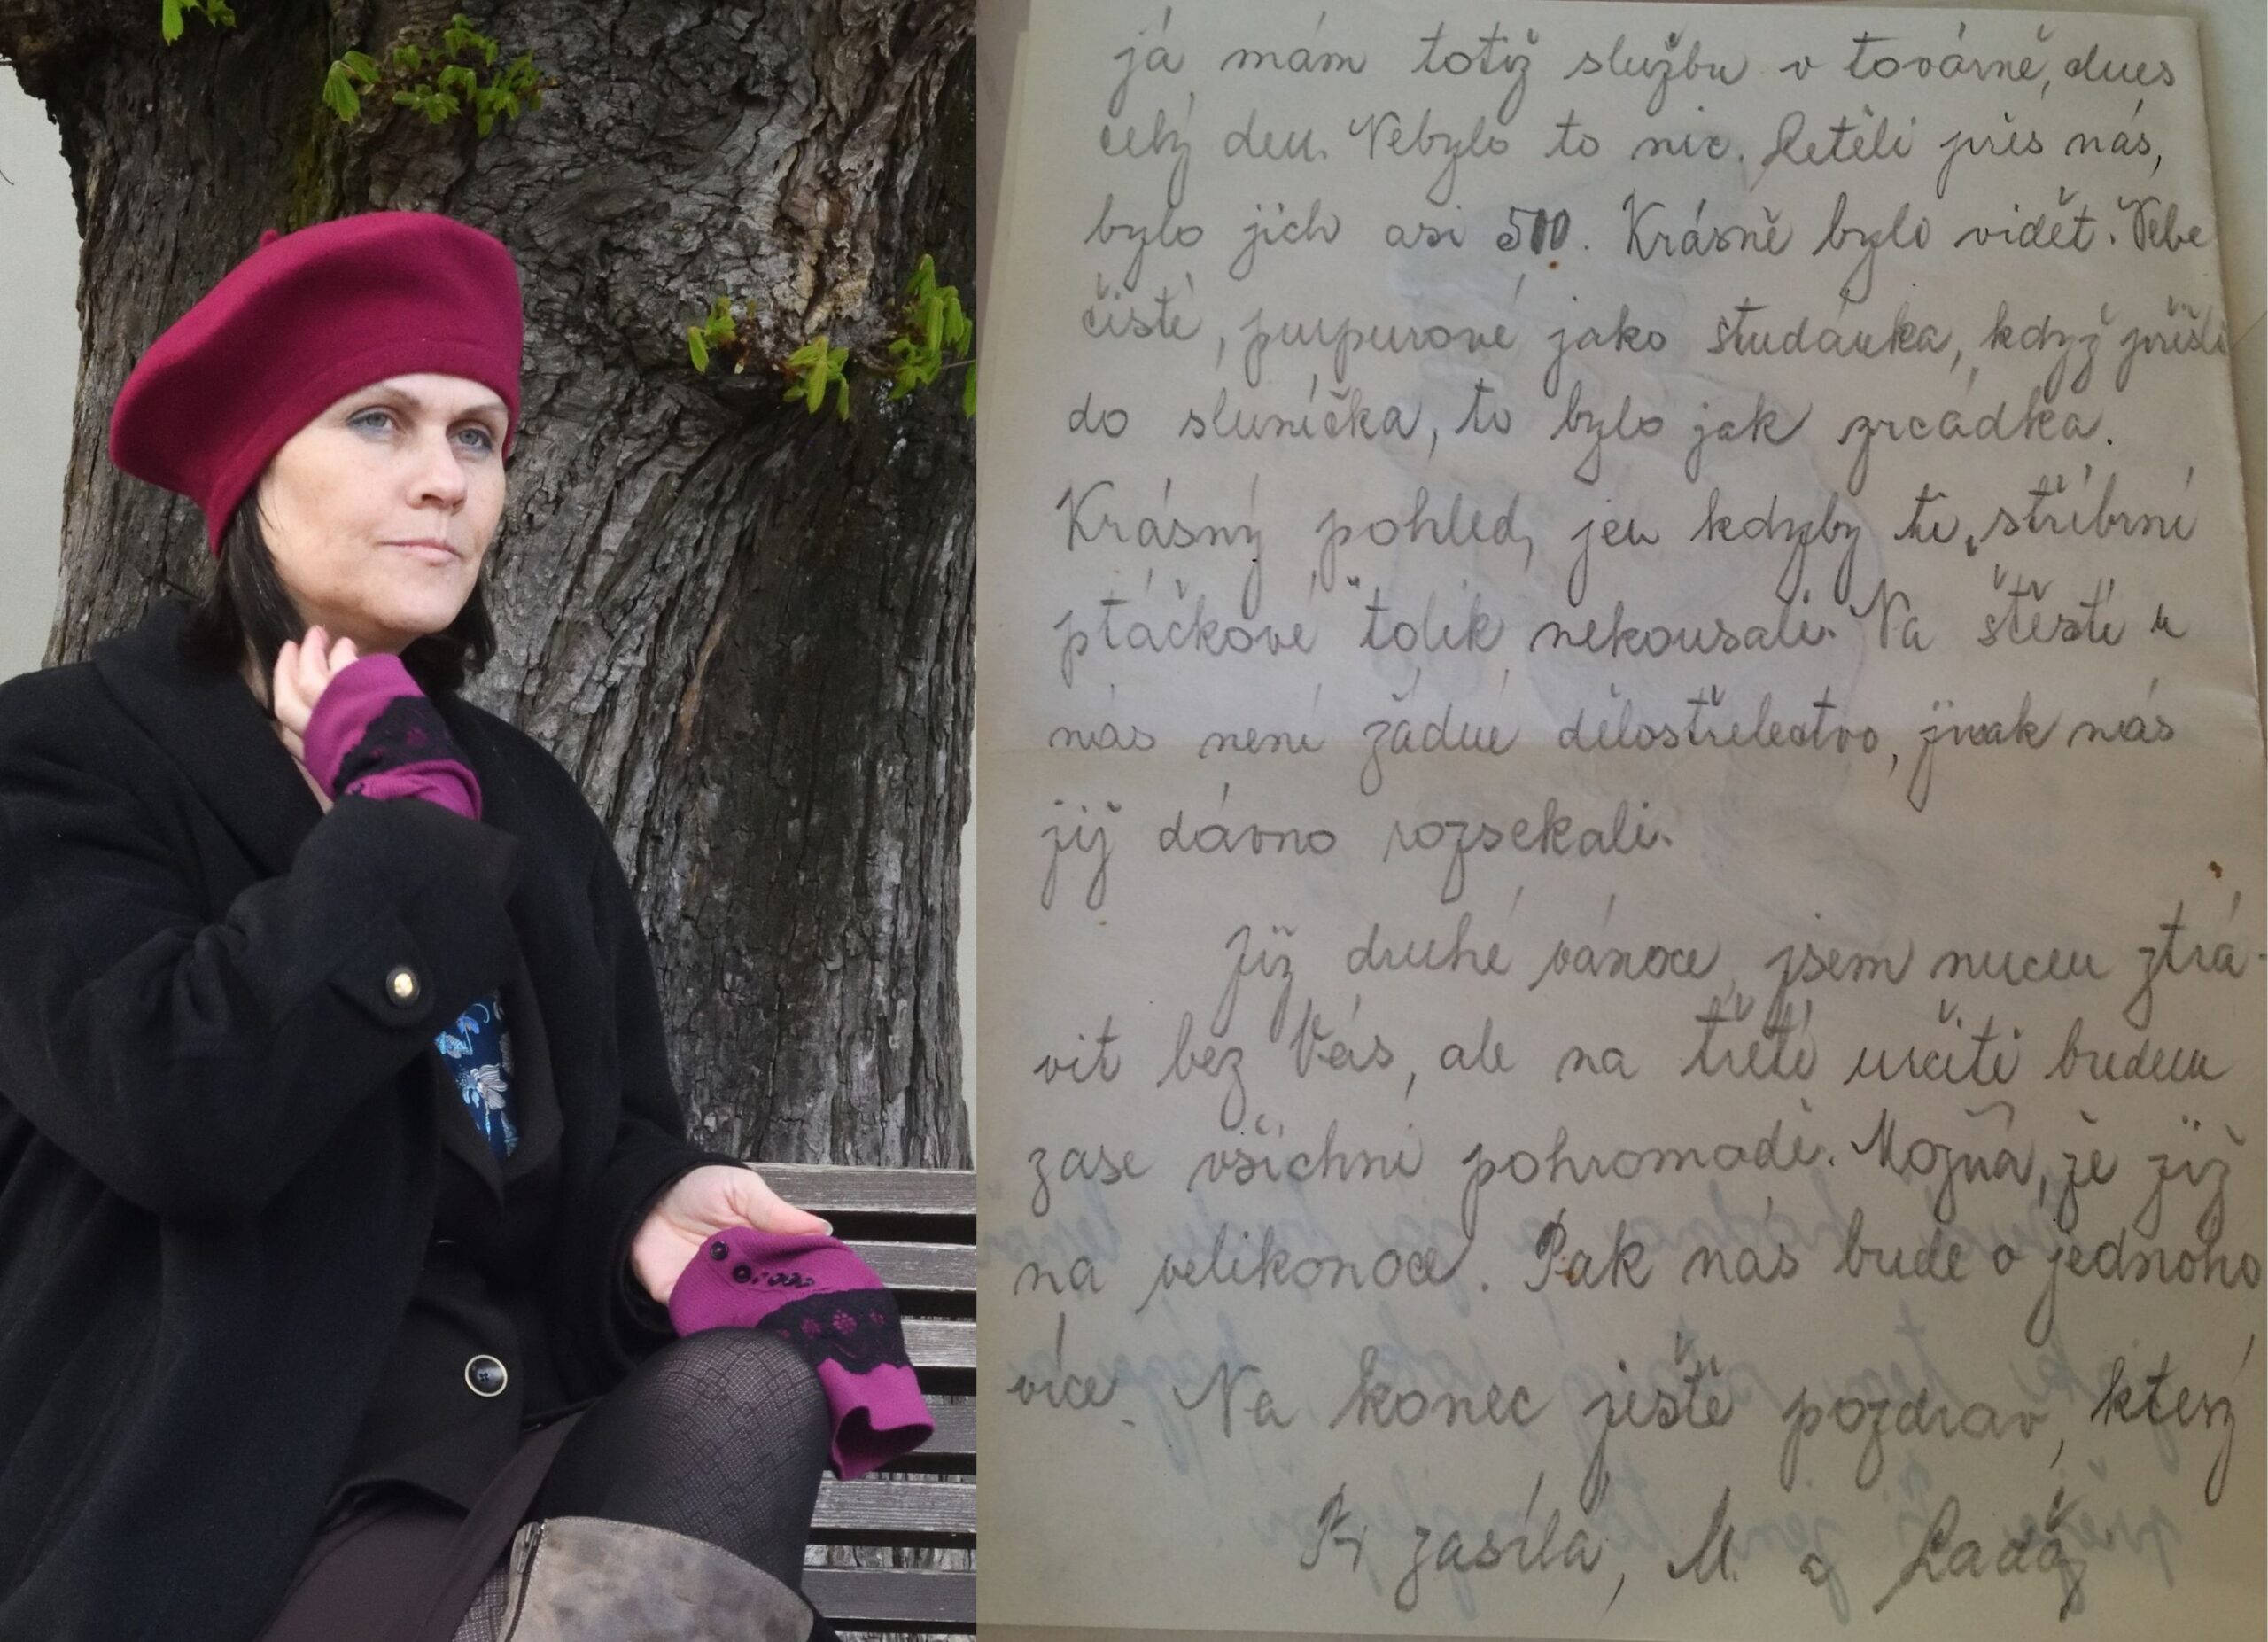 já mám totiž službu v továrně, dnes
celý den. Nebylo to nic. Letěli přes nás,
bylo jich asi 500. Krásně bylo vidět. Nebe
čisté, purpurové jako studánka, když přišli
do sluníčka, to bylo jak zrcádka.
Krásný pohled, jen kdyby ti „stříbrní
ptáčkové" tolik nekousali. Na štěstí u
nás není žádné dělostřelectvo, jinak nás
již dávno rozsekali.
Již druhé vánoce, jsem nucen ztrá-
vit bez Vás, ale na třetí určitě budem
zase všichni pohromadě. Možná, že již
na velikonoce. Pak nás bude o jednoho
více. Na konec ještě pozdrav, který
zasílá, M. a Laďa